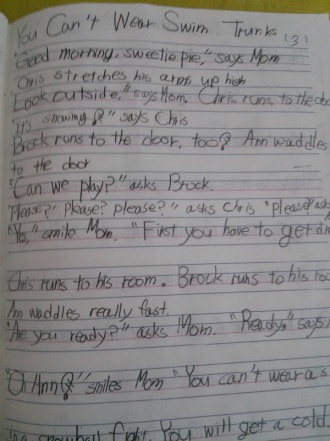 You Can't Wear Swim Trunks (3)
"Good morning, sweetie pie," says Mom
Chris stretches his arms up high
"Look outside," says Mom. Chris runs to the doo
"It's snowing!" says Chris
Brock runs to the door, too! Ann waddles
to the door
"Can we play?" asks Brock.
"Please? Please? please?" asks Chris "Please? ask
"Yes," smile Mom. "First you have to get d
Chris runs to his room. Brock runs to his roo
Ann waddles really fast.
"Are you ready?" asks Mom. "Ready," says
"O Ann!" smiles Mom "You can't wear a s
snowball fight. You will get a cold.